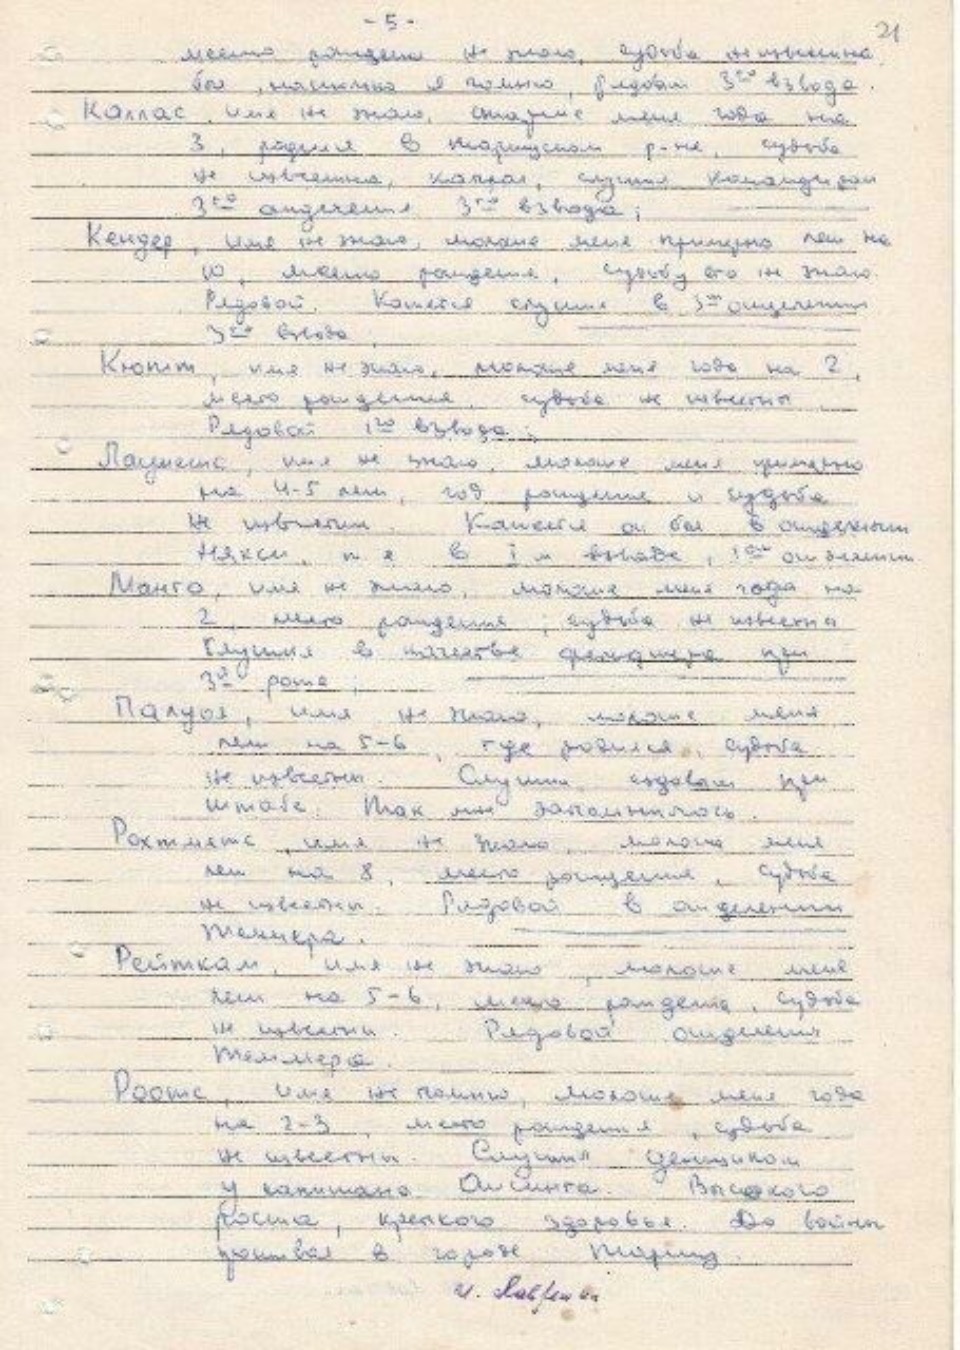 - 5 -
21
место рождения не знаю, судьба не известна
был, насколько я помню, рядовым 3го взвода.
Каллас, имя не знаю, старше меня года на
3, родился в Тартуском р-не, судьба
не известна, капрал, служил командиром
3го отделения 3го взвода;
Кендер, имя не знаю, моложе меня примерно лет на
10, место рождения, судьбу его не знаю.
Рядовой. Кажется служил в 3м отделении
3го взвода
Кюпт, имя не знаю, моложе меня года на 2,
место рождения, судьба не известны
Рядовой 1го взвода;
Лауметс, имя не знаю, моложе меня примерно
на 4-5 лет, год рождения и судьба
не известны. Кажется он был в отделении
Някси, т.е. в 1м взводе, 1ом отделении
Манго, имя не знаю, моложе меня года на
2, место рождения, судьба не известны
Служил в качестве фельдшера при
3й роте;
Палуоя, имя не знаю, моложе меня
лет на 5-6, где родился, судьба
не известны. Служил ездовым при
штабе. Так мне запомнилось.
Рохтметс, имя не знаю, моложе меня
лет на 8, место рождения, судьба
не известны. Рядовой в отделении
Теммера.
Рейткам, имя не знаю, моложе меня
лет на 5-6, место рождения, судьба
не известны. Рядовой отделения
Теммера.
Роотс, имя не помню, моложе меня года
на 2-3, место рождения, судьба
не известны. Служил денщиком
у капитана. Высокого
роста, крепкого здоровья. До войны
проживал в городе Тарту.